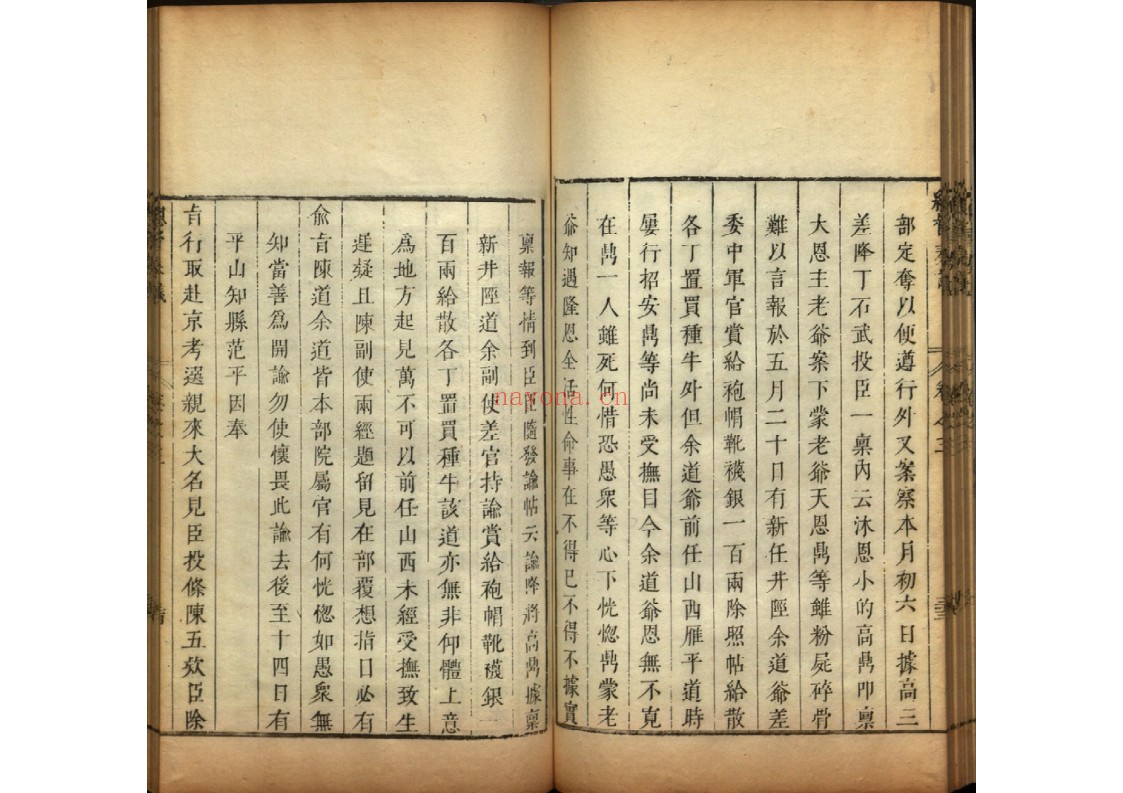 部定奪以便遵行外又案察本月初六日據高三
差降丁石武投臣一稟內云沐恩小的高鼎叩稟
大恩主老爺案下蒙老爺天恩鼎等雖粉屍碎骨
難以言報於五月二十日有新任井陘余道爺差
委中軍官賞給袍帽靴襪銀一百兩除照帖給散
各丁置買種牛外但余道爺前任山西雁平道時
屢行招安鼎等尚未受撫目今余道爺恩無不寬
在鼎一人雖死何惜恐愚衆等心下恍惚鼎蒙老
爺知遇隆恩全活性命事在不得已不得不據實
稟報等情到臣臣隨發諭帖云諭降將高鼎據稟
新井陘道余副使差官持諭賞給袍帽靴襪銀一
百兩給散各丁置買種牛該道亦無非仰體上意
爲地方起見萬不可以前任山西未經受撫致生
遲疑且陳副使兩經題留見在部覆想指日必有
俞旨陳道余道皆本部院屬官有何恍惚如愚衆無
知當善爲開諭勿使懷畏此諭去後至十四日有
平山知縣范平因奉
旨行取赴京考選親來大名見臣投條陳五欵臣除
nayona.cn